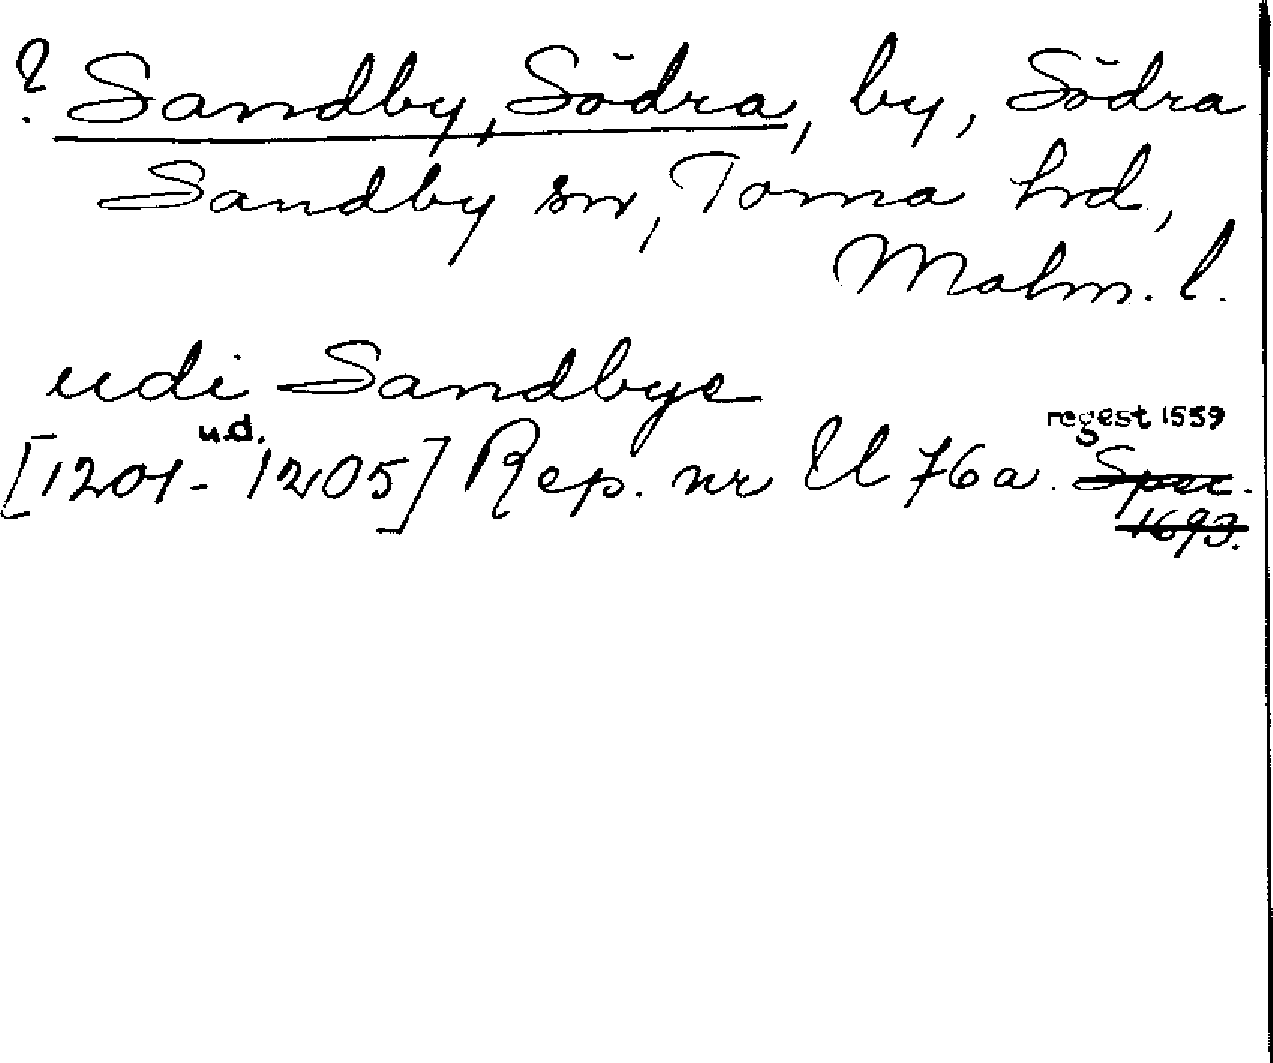 ? Sandby, Södra, by, Södra
Sandby sn, Torna hrd,
Malm. l.
udi Sandbye
u.d. regest 1559
[1201-1205] Rep. nr U 76a. Spec.
1693.